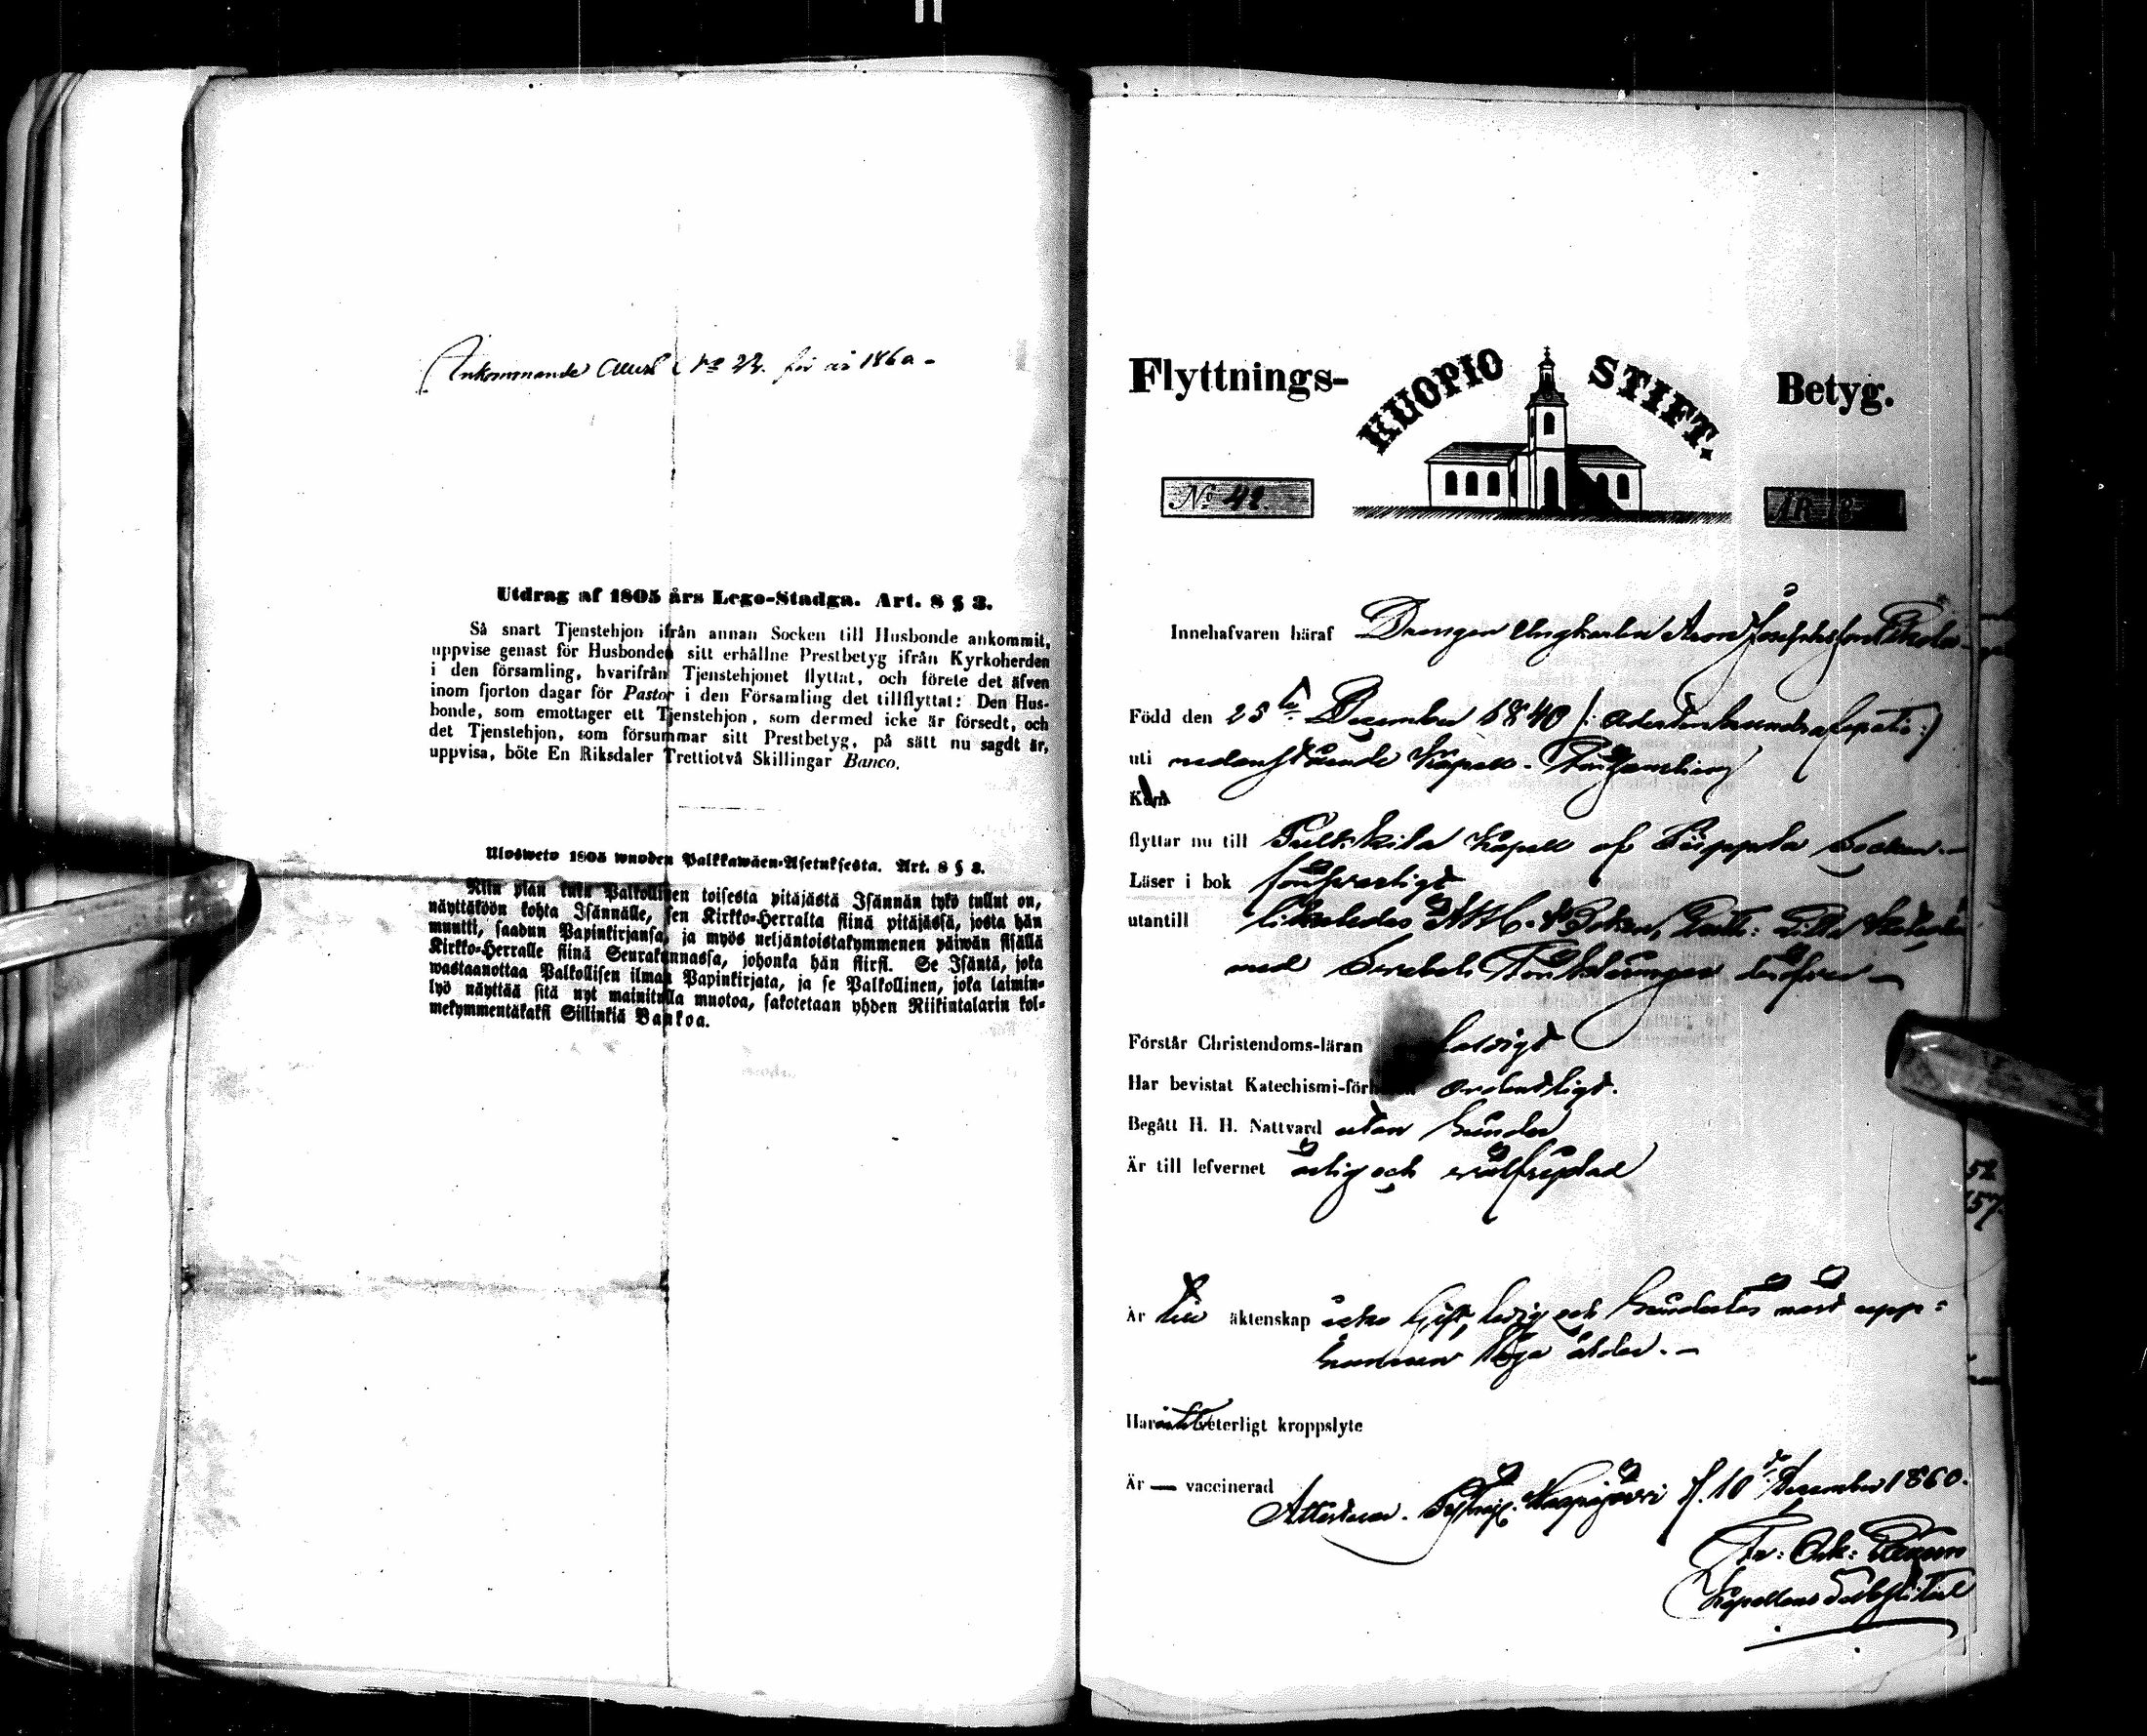 Ankommande Attest No 22. för år 1860 -
Utdrag af 1805 års Lego-Stadga. Art. 8 § 3.
Så snart Tjenstehjon ifrån annan Socken till Husbonde ankommit,
uppvise genast för Husbonden sitt erhållne Prestbetyg ifrån Kyrkoherden
i den församling, hvarifrån Tjenstehjonet flyttat, och förete det äfven
inom fjorton dagar för Pastor i den Församling det tillflyttat: Den Hus-
bonde, som emottager ett Tjenstehjon, som dermed icke är försedt, och
det Tjenstehjon, som försummar sitt Prestbetyg, på sätt nu sagdt är,
uppvisa, böte En Riksdaler Trettiotvå Skillingar Banco.
Ulosweto 1805 wuoden Palkkawäen-Asetuksesta. Art. 8 § 3.
Niin pian kuin Palkollinen toisesta pitäjästä Isännän tykö tullut on,
näyttäköön kohta Isännälle, sen Kirkko-Herralta siinä pitäjässä, josta hän
muutti, saadun Papinkirjansa, ja myös neljäntoistakymmenen päiwän sisällä
Kirkko-Herralle siinä Seurakunnassa, johonka hän siirsi. Se Isäntä, joka
wastaanottaa Palkollisen ilman Papinkirjata, ja se Palkollinen, joka laimin-
lyö näyttää sitä nyt mainitulla muotoa, sakotetaan yhden Riikintalarin kol-
mekymmentäkaksi Sillinkiä Bankoa.
Flyttnings- KUOPIO STIFT. Betyg.
No 42. ÅR 18
Innehafvaren häraf Drengen Ungkarlen Aron Josephsson
Född den 25te December 1840
uti nedanstående Kapell-Församling
flyttar nu till Pulkkila Kapell af Siippola Socken.-
Läser i bok försvarligt
utantill likaledes
med Svebeli Förklaringen
Förstår Christendoms-läran
Har bevistat Katechismi-förh ordentligt.
Begått H. H. Nattvard utan hinder
Är till lefvernet ärlig och välfrejdad
Är till äktenskap icke Gift, ledig och hinderlös med upp=
hunnen laga ålder. -
Har intet veterligt kroppslyte
Är — vaccinerad
Attesterar. Pyhäj. Haapajärvi d. 10de December 1860.
Kapellans Substitut